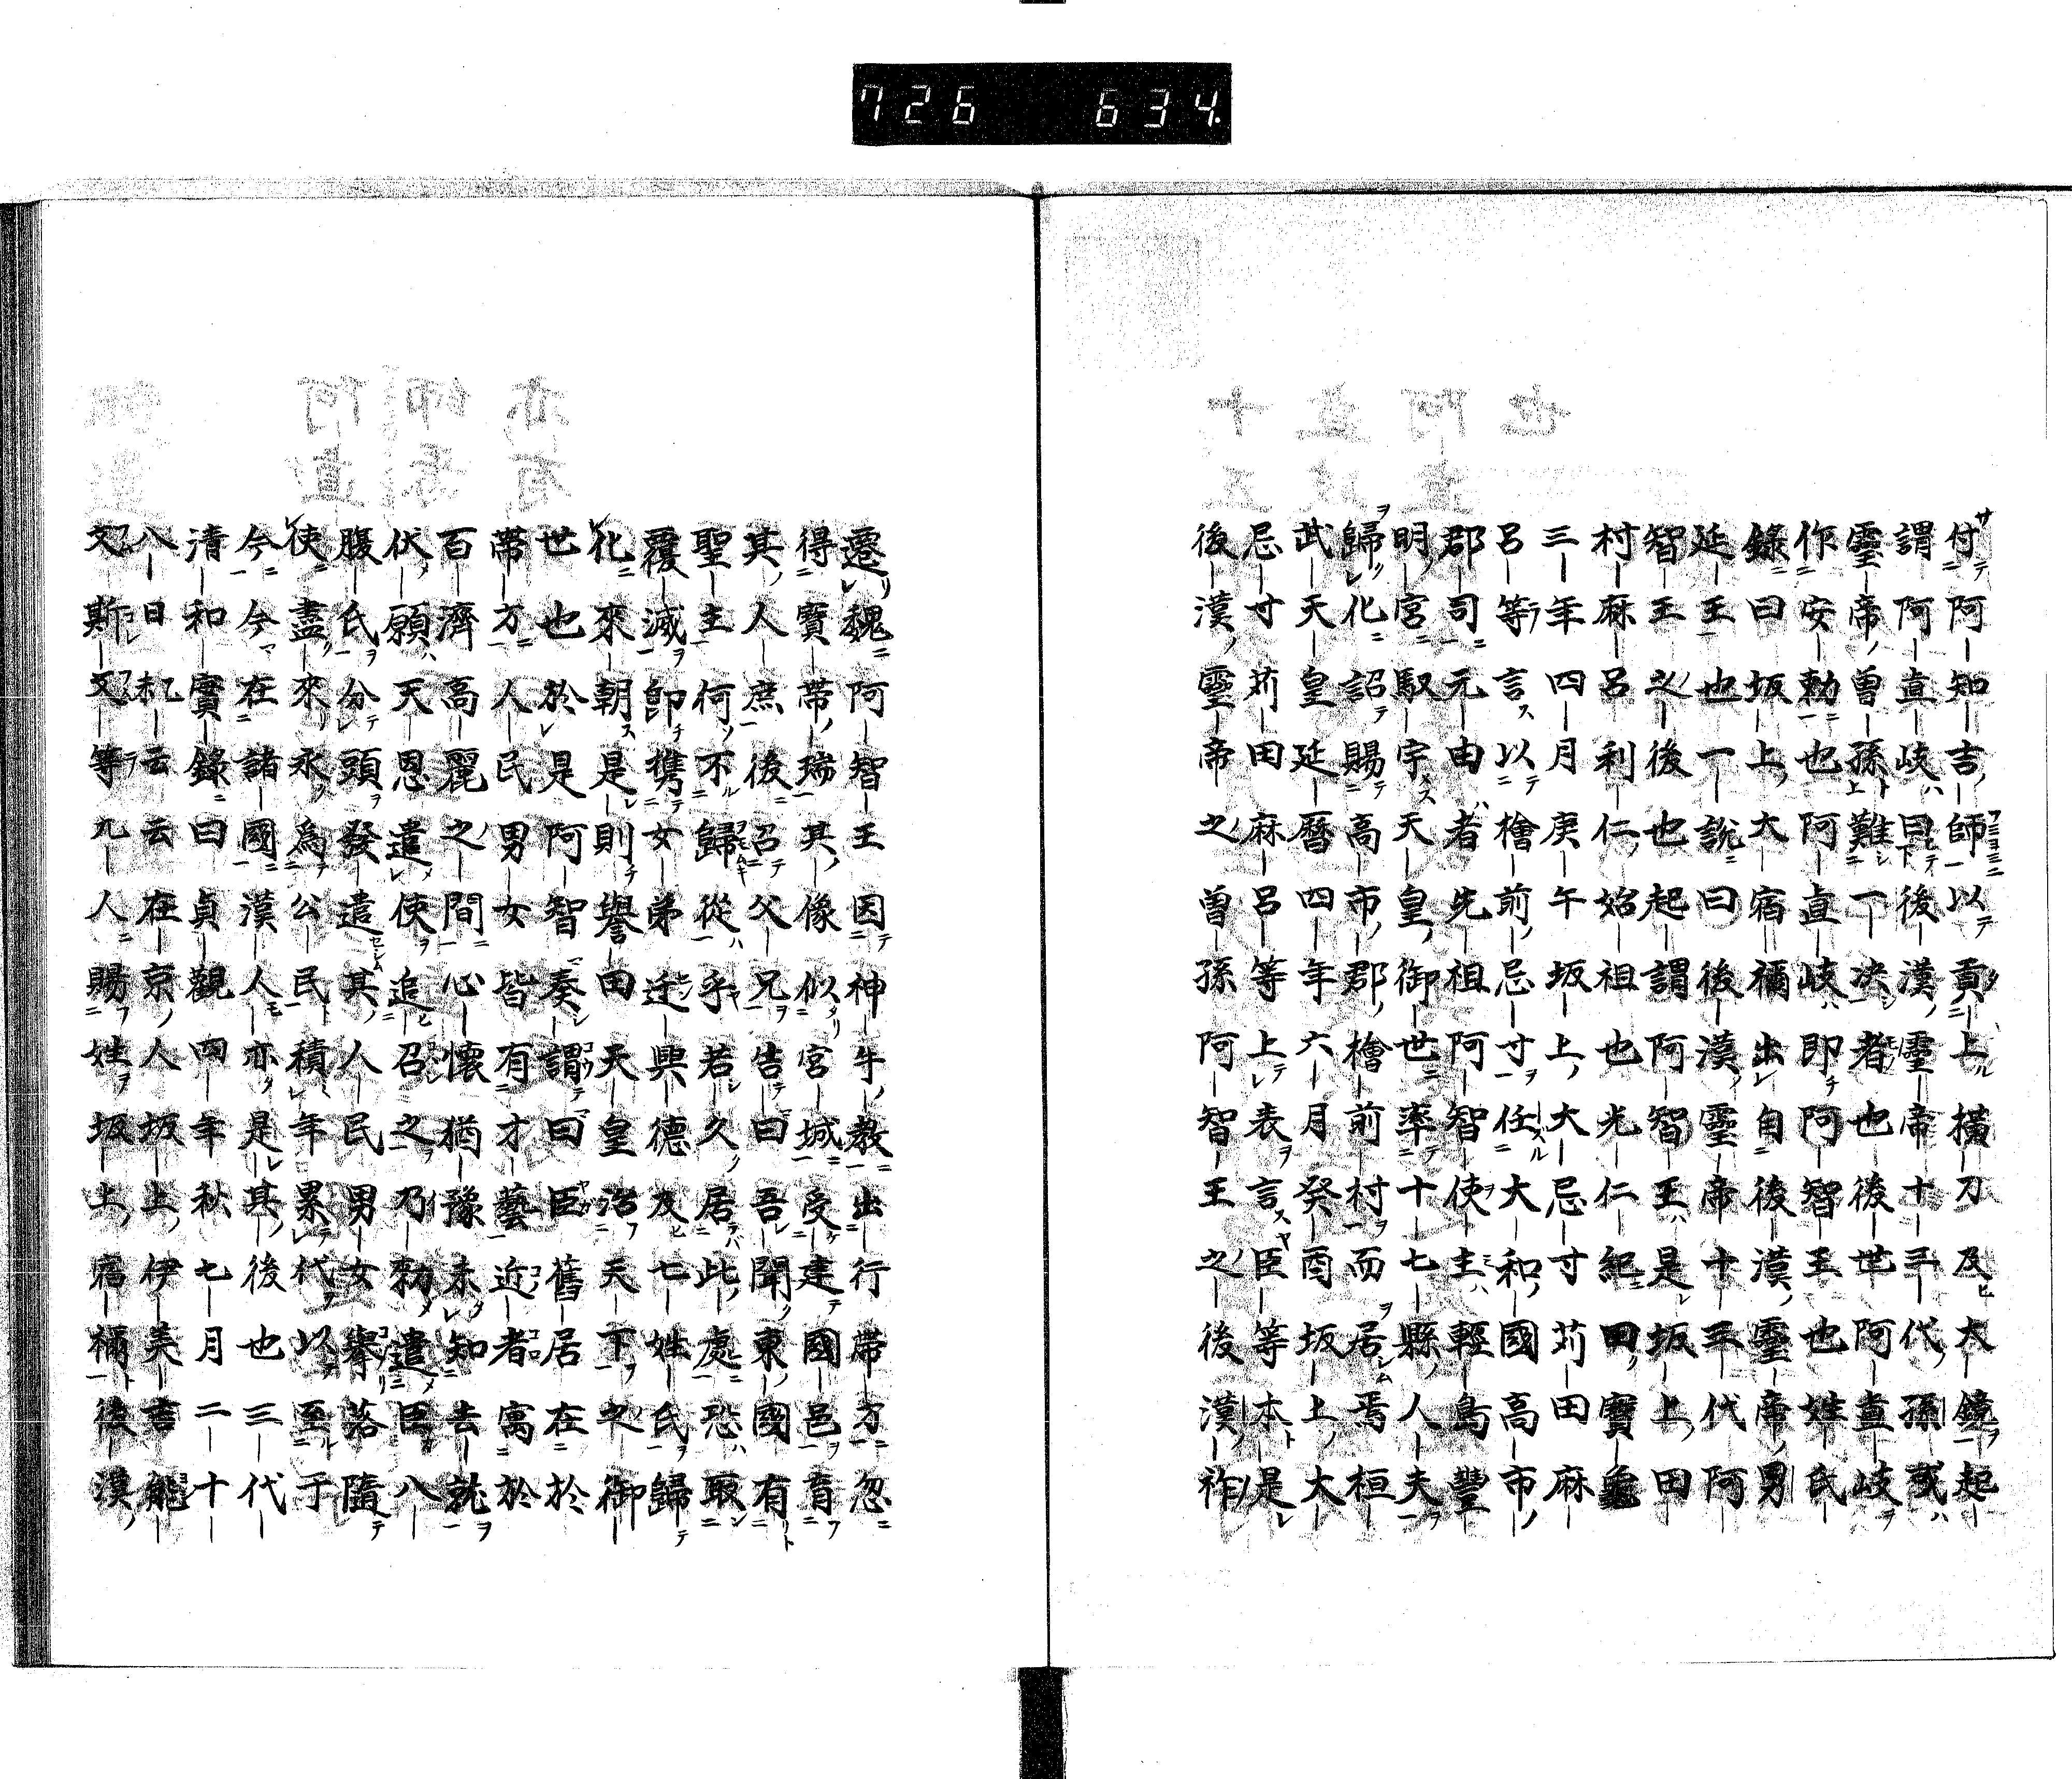 726 634
付阿知吉師以貢上横刀及大鏡起
謂阿直岐曰後漢靈帝十三代孫或
靈帝曽孫難一决者也後世阿直岐
作安勅也阿直岐即阿智王也姓氏
録曰坂上大宿禰出自後漢靈帝男
延王也一説曰後漢靈帝十三代阿
智王之後也起謂阿智王是坂上田
村麻呂利仁始祖也光仁紀曰寶龜
三年四月庚午坂上大忌寸苅田麻
呂等言以檜前忌寸任大和國高市
郡司元由者先祖阿智使主輕島豐
明宮馭宇天皇御世率十七縣人夫
歸化詔賜高市郡檜前村而居焉桓
武天皇延暦四年六月癸酉坂上大
忌寸苅田麻呂等上表言臣等本是
後漢靈帝之曽孫阿智王之後漢祚
遷魏阿智王因神牛教出行帶方忽
得寶帶瑞其像似宮城受建國邑育
其人庶後召父兄告曰吾聞東國有
聖主何不歸從乎若久居此處恐取
覆滅即携女弟迂興德及七姓氏歸
化來朝是則譽田天皇治天下之御
世也於是阿智奏謂曰臣舊居在於
帶方人民男女皆有才藝近者寓於
百濟高麗之間心懷猶豫未知去就
伏願天恩遣使追召之乃勅遣臣八
腹氏分頭發遣其人民男女擧落隨
使盡來永爲公民積年累代以至于
今今在諸國漢人亦是其後也三代
清和實録曰貞觀四年秋七月二十
八日乙未云云在京人坂上伊美吉能
文斯文等九人賜姓坂上宿禰後漢